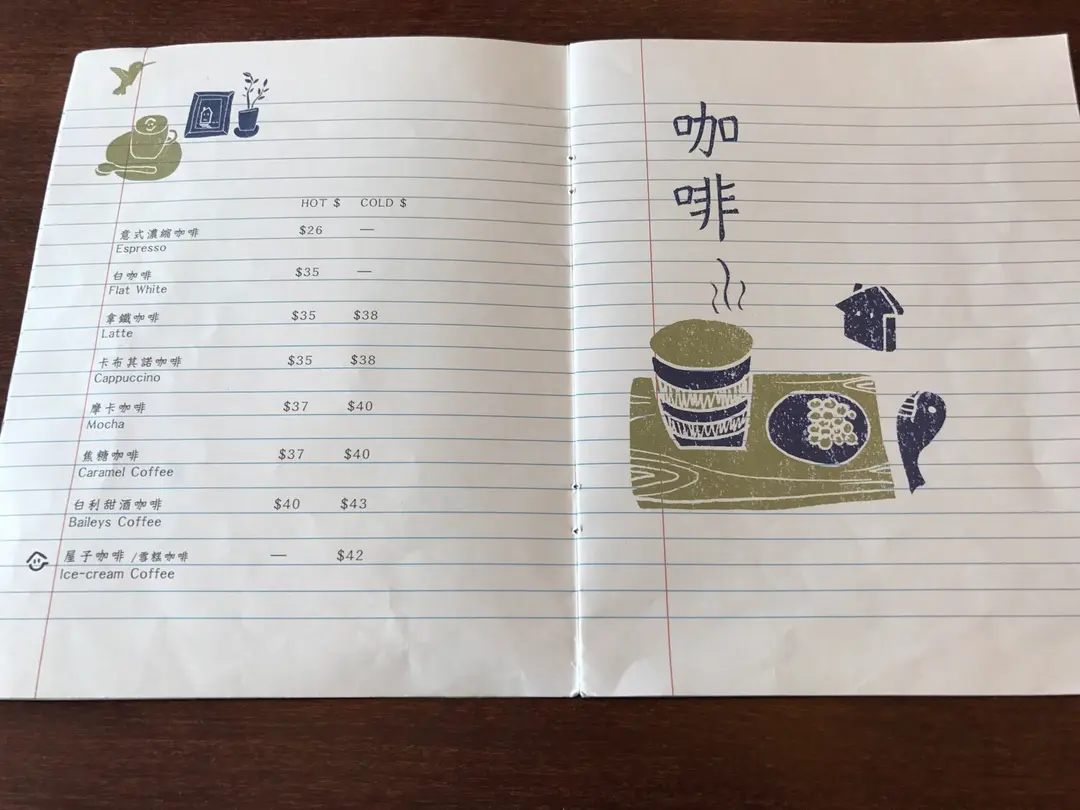 HOT $ COLD $
意式濃縮咖啡 $26 —
Espresso
白咖啡 $35 —
Flat White
拿鐵咖啡 $35 $38
Latte
卡布其諾咖啡 $35 $38
Cappuccino
摩卡咖啡 $37 $40
Mocha
焦糖咖啡 $37 $40
Caramel Coffee
白利甜酒咖啡 $40 $43
Baileys Coffee
屋子咖啡 /雪糕咖啡 — $42
Ice-cream Coffee
咖
啡